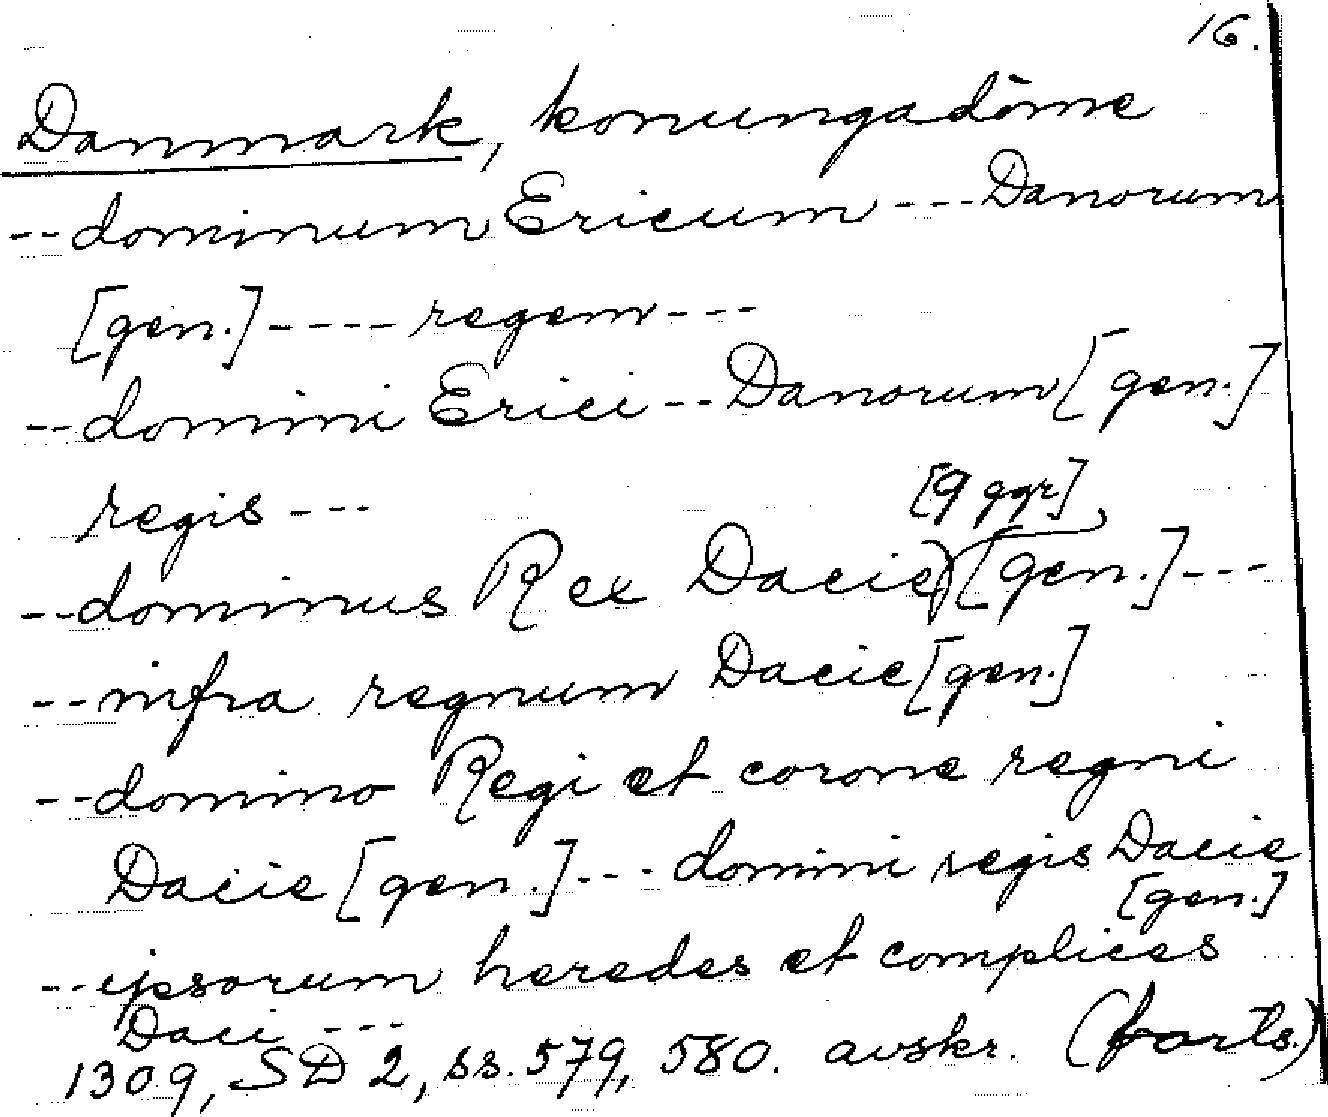 16.
Danmark, konungadöme
--dominum Ericum --- Danorum
[gen.]---- regem ---
--domini Erici -- Danorum [gen.]
regis --- [9 ggr]
--dominus Rex Dacie) [gen.]---
--infra regnum Dacie [gen.]
--domino Regi et corone regni
Dacie [gen.]--- domini regis Dacie
[gen.]
--ipsorum heredes et complices
Daci ---
1309, SD 2, ss. 579, 580. avskr. (forts.)